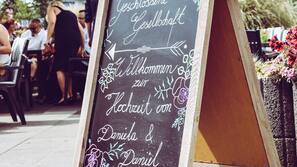 Geschlossene
Gesellschaft
Willkommen
zur
Hochzeit von
Daniela &
Daniel